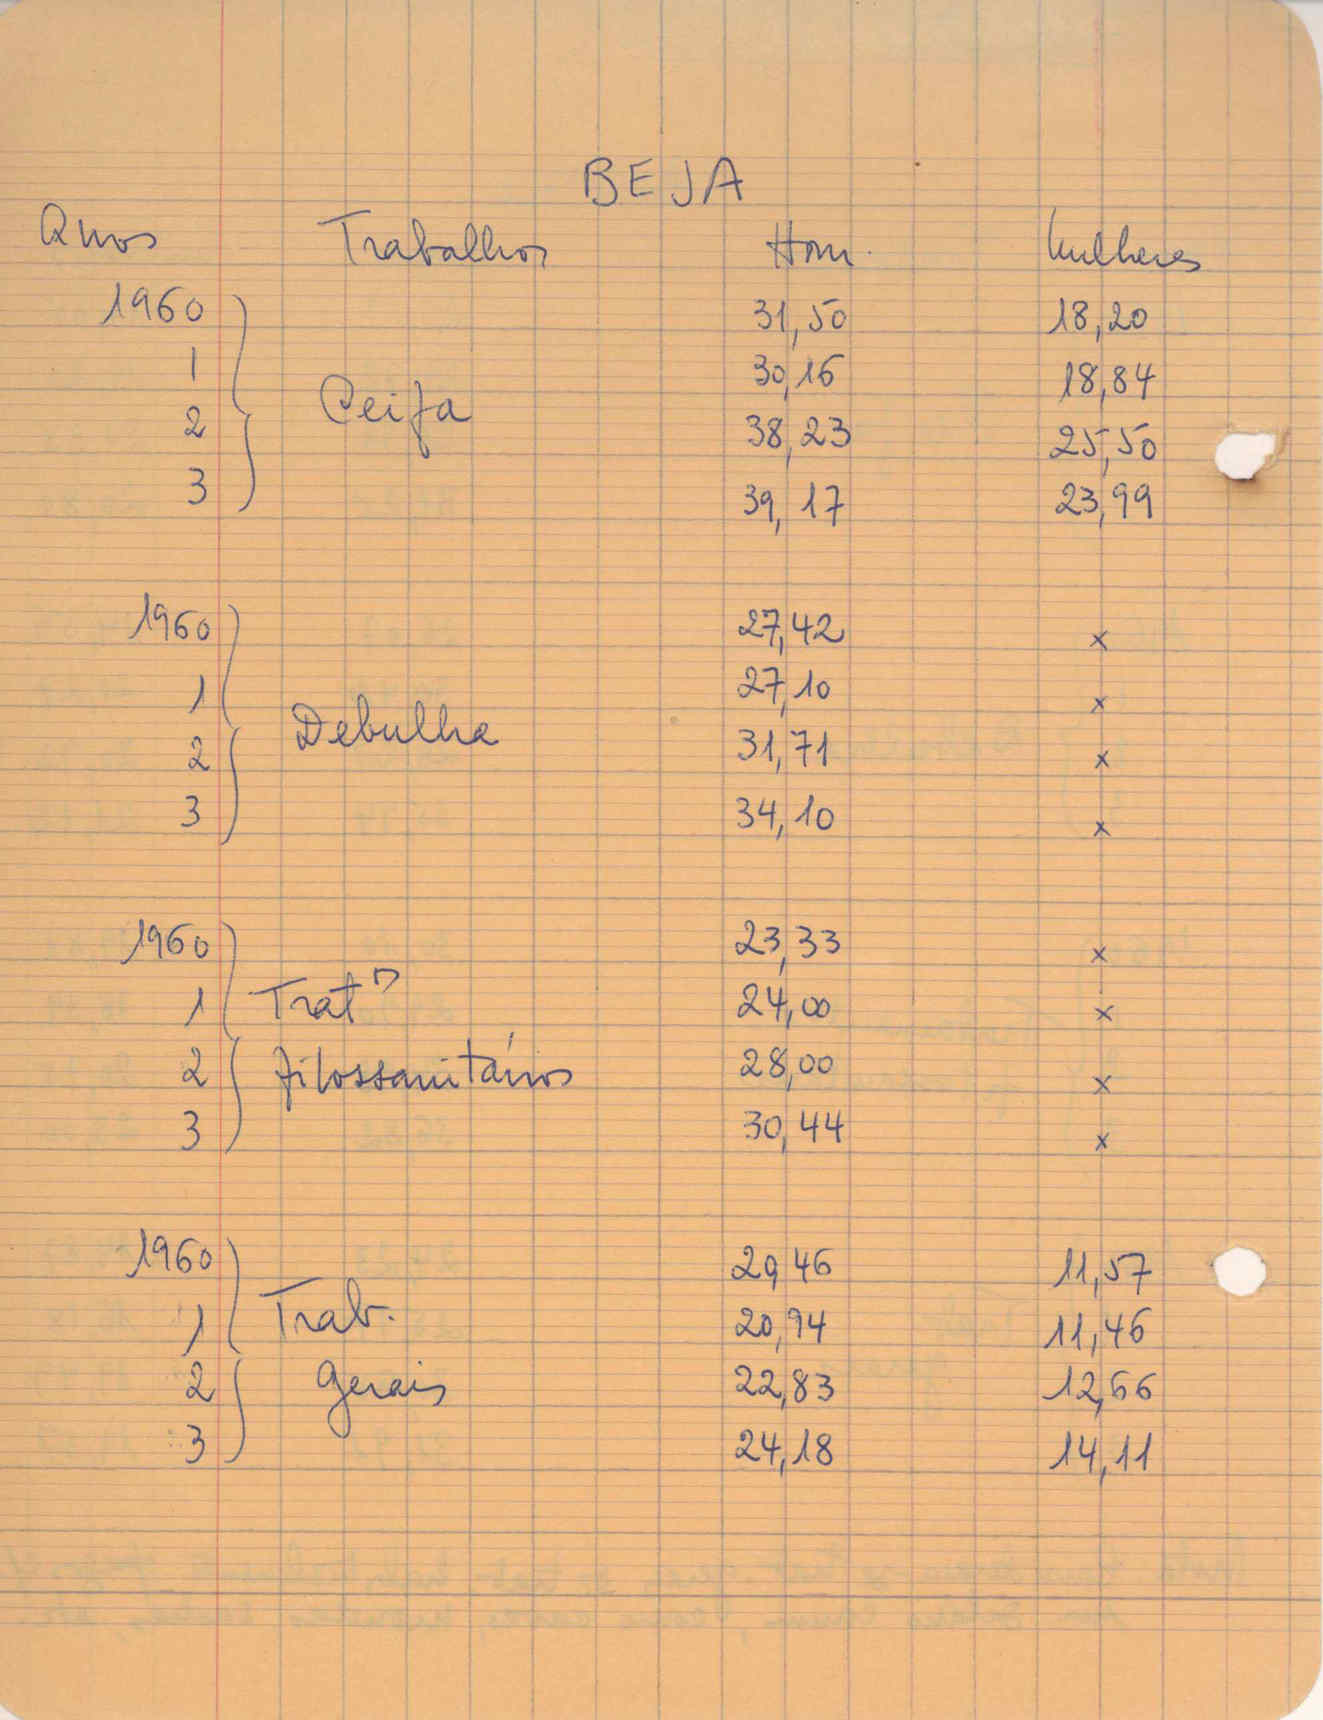 BEJA
Anos Trabalhos Hom. Mulheres
1960 31,50 18,20
1 30,16 18,84
Ceifa
2 38,23 25,50
3 39,17 23,99
1960 27,42 x
1 27,10 x
Debulha
2 31,71 x
3 34,10 x
1960 23,33 x
1 Trat º 24,00 x
2 fitossanitários 28,00 x
3 30,44 x
1960 46 11,57
1 Trab. 20,94 11,46
2 gerais 22,83 12,66
3 24,18 14,11